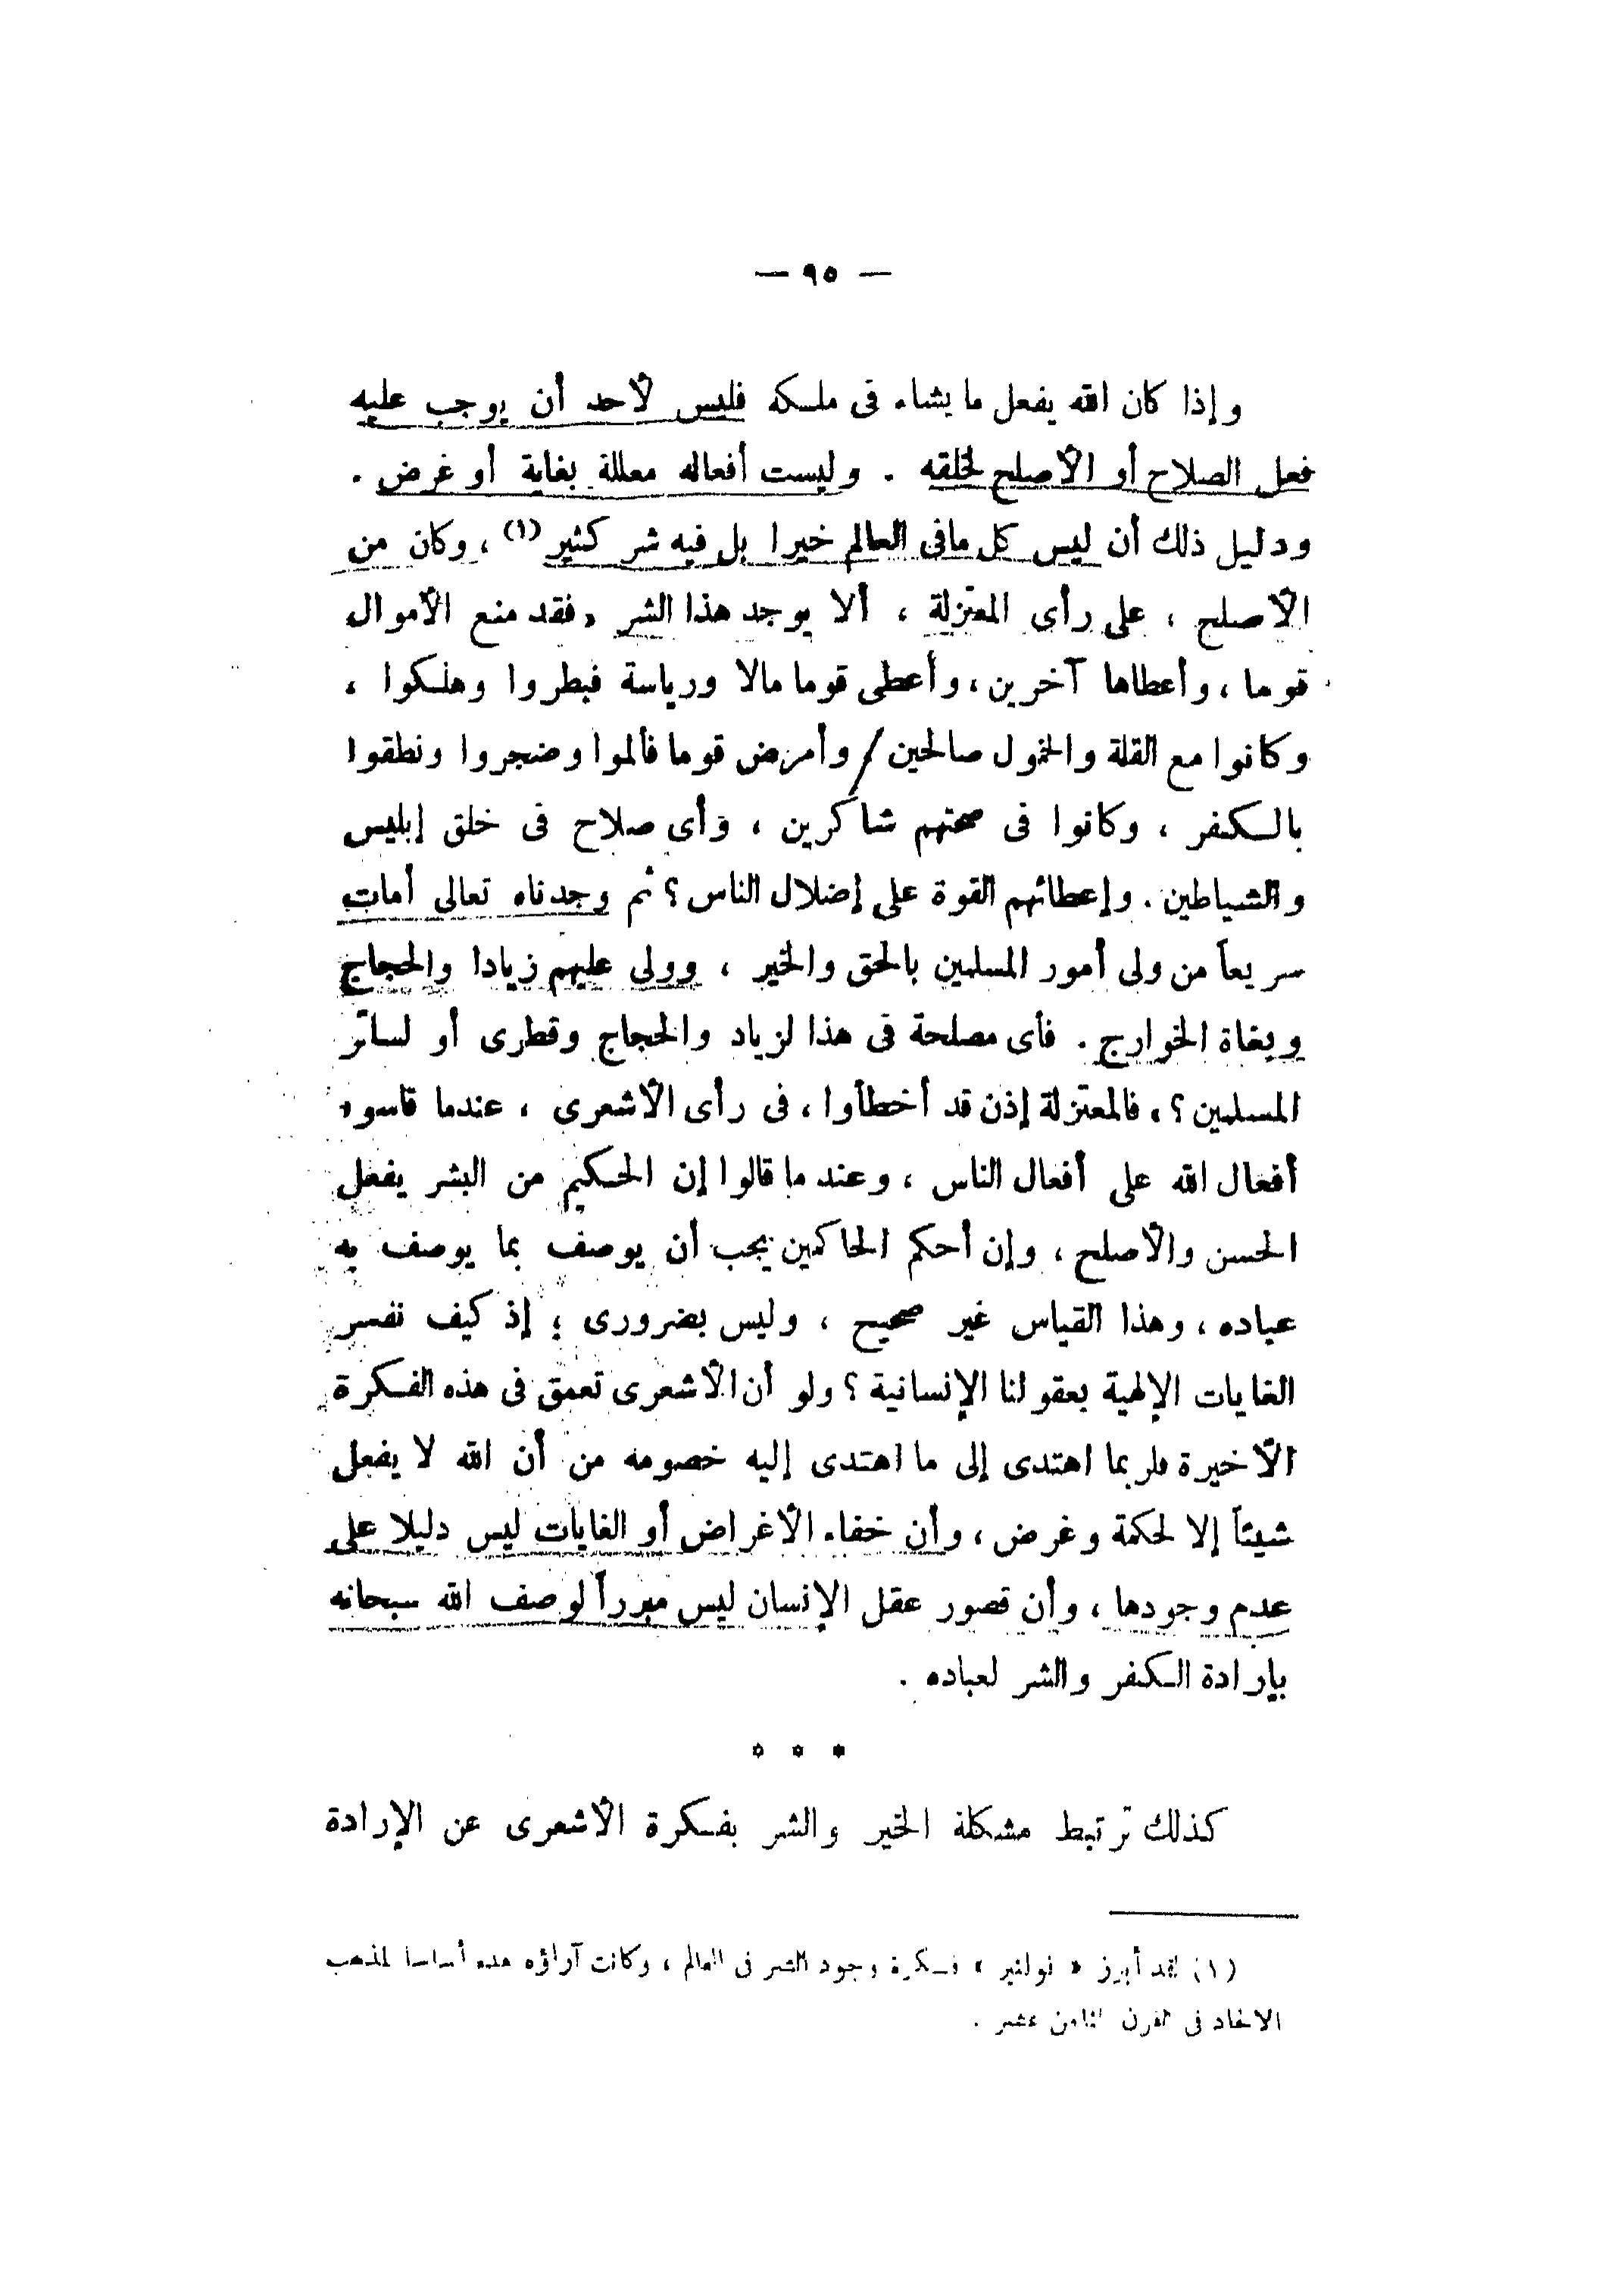 — ٩٥ —
وإذا كان الله يفعل ما يشاء فى ملكه فليس لأحد أن يوجب عليه
فعل الصلاح أو الأصلح لخلقه . وليست أفعاله معللة بغاية أو غرض .
ودليل ذلك أن ليس كل مافى العالم خيرا بل فيه شر كثير (١) ، وكان من
الأصلح ، على رأى المعتزلة ، ألا يوجد هذا الشر «فقد منع الأموال
قوما ، وأعطاها آخرين ، وأعطى قوما مالا ورياسة فبطروا وهلكوا ،
وكانوا مع القلة والخمول صالحين / وأمرض قوما فألموا وضجروا ونطقوا
بالكفر ، وكانوا فى صحتهم شاكرين ، وأى صلاح فى خلق إبليس
والشياطين . وإعطائهم القوة على إضلال الناس ؟ ثم وجدناه تعالى أمات
سريعاً من ولى أمور المسلمين بالحق والخير ، وولى عليهم زيادا والحجاج
وبغاة الخوارج . فأى مصلحة فى هذا لزياد والحجاج وقطرى أو لسائر
المسلمين ؟ ، فالمعتزلة إذن قد أخطأوا ، فى رأى الأشعرى ، عندما قاسوا
أفعال الله على أفعال الناس ، وعند ما قالوا إن الحكيم من البشر يفعل
الحسن والأصلح ، وإن أحكم الحاكمين يجب أن يوصف بما يوصف به
عباده ، وهذا القياس غير صحيح ، وليس بضرورى ؛ إذ كيف نفسر
الغايات الإلهية بعقولنا الإنسانية ؟ ولو أن الأشعرى تعمق فى هذه الفكرة
الأخيرة فلربما اهتدى إلى ما اهتدى إليه خصومه من أن الله لا يفعل
شيئاً إلا لحكمة وغرض ، وأن خفاء الأغراض أو الغايات ليس دليلا على
عدم وجودها ، وأن قصور عقل الإنسان ليس مبرراً لوصف الله سبحانه
بإرادة الكفر والشر لعباده .
* * *
كذلك ترتبط مشكلة الخير والشر بفكرة الأشعرى عن الإرادة
(١) لقد أبرز « فولتير » فكرة وجود الشر فى العالم ، وكانت آراؤه هذه أساسا لمذهب
الالحاد فى القرن الثامن عشر .